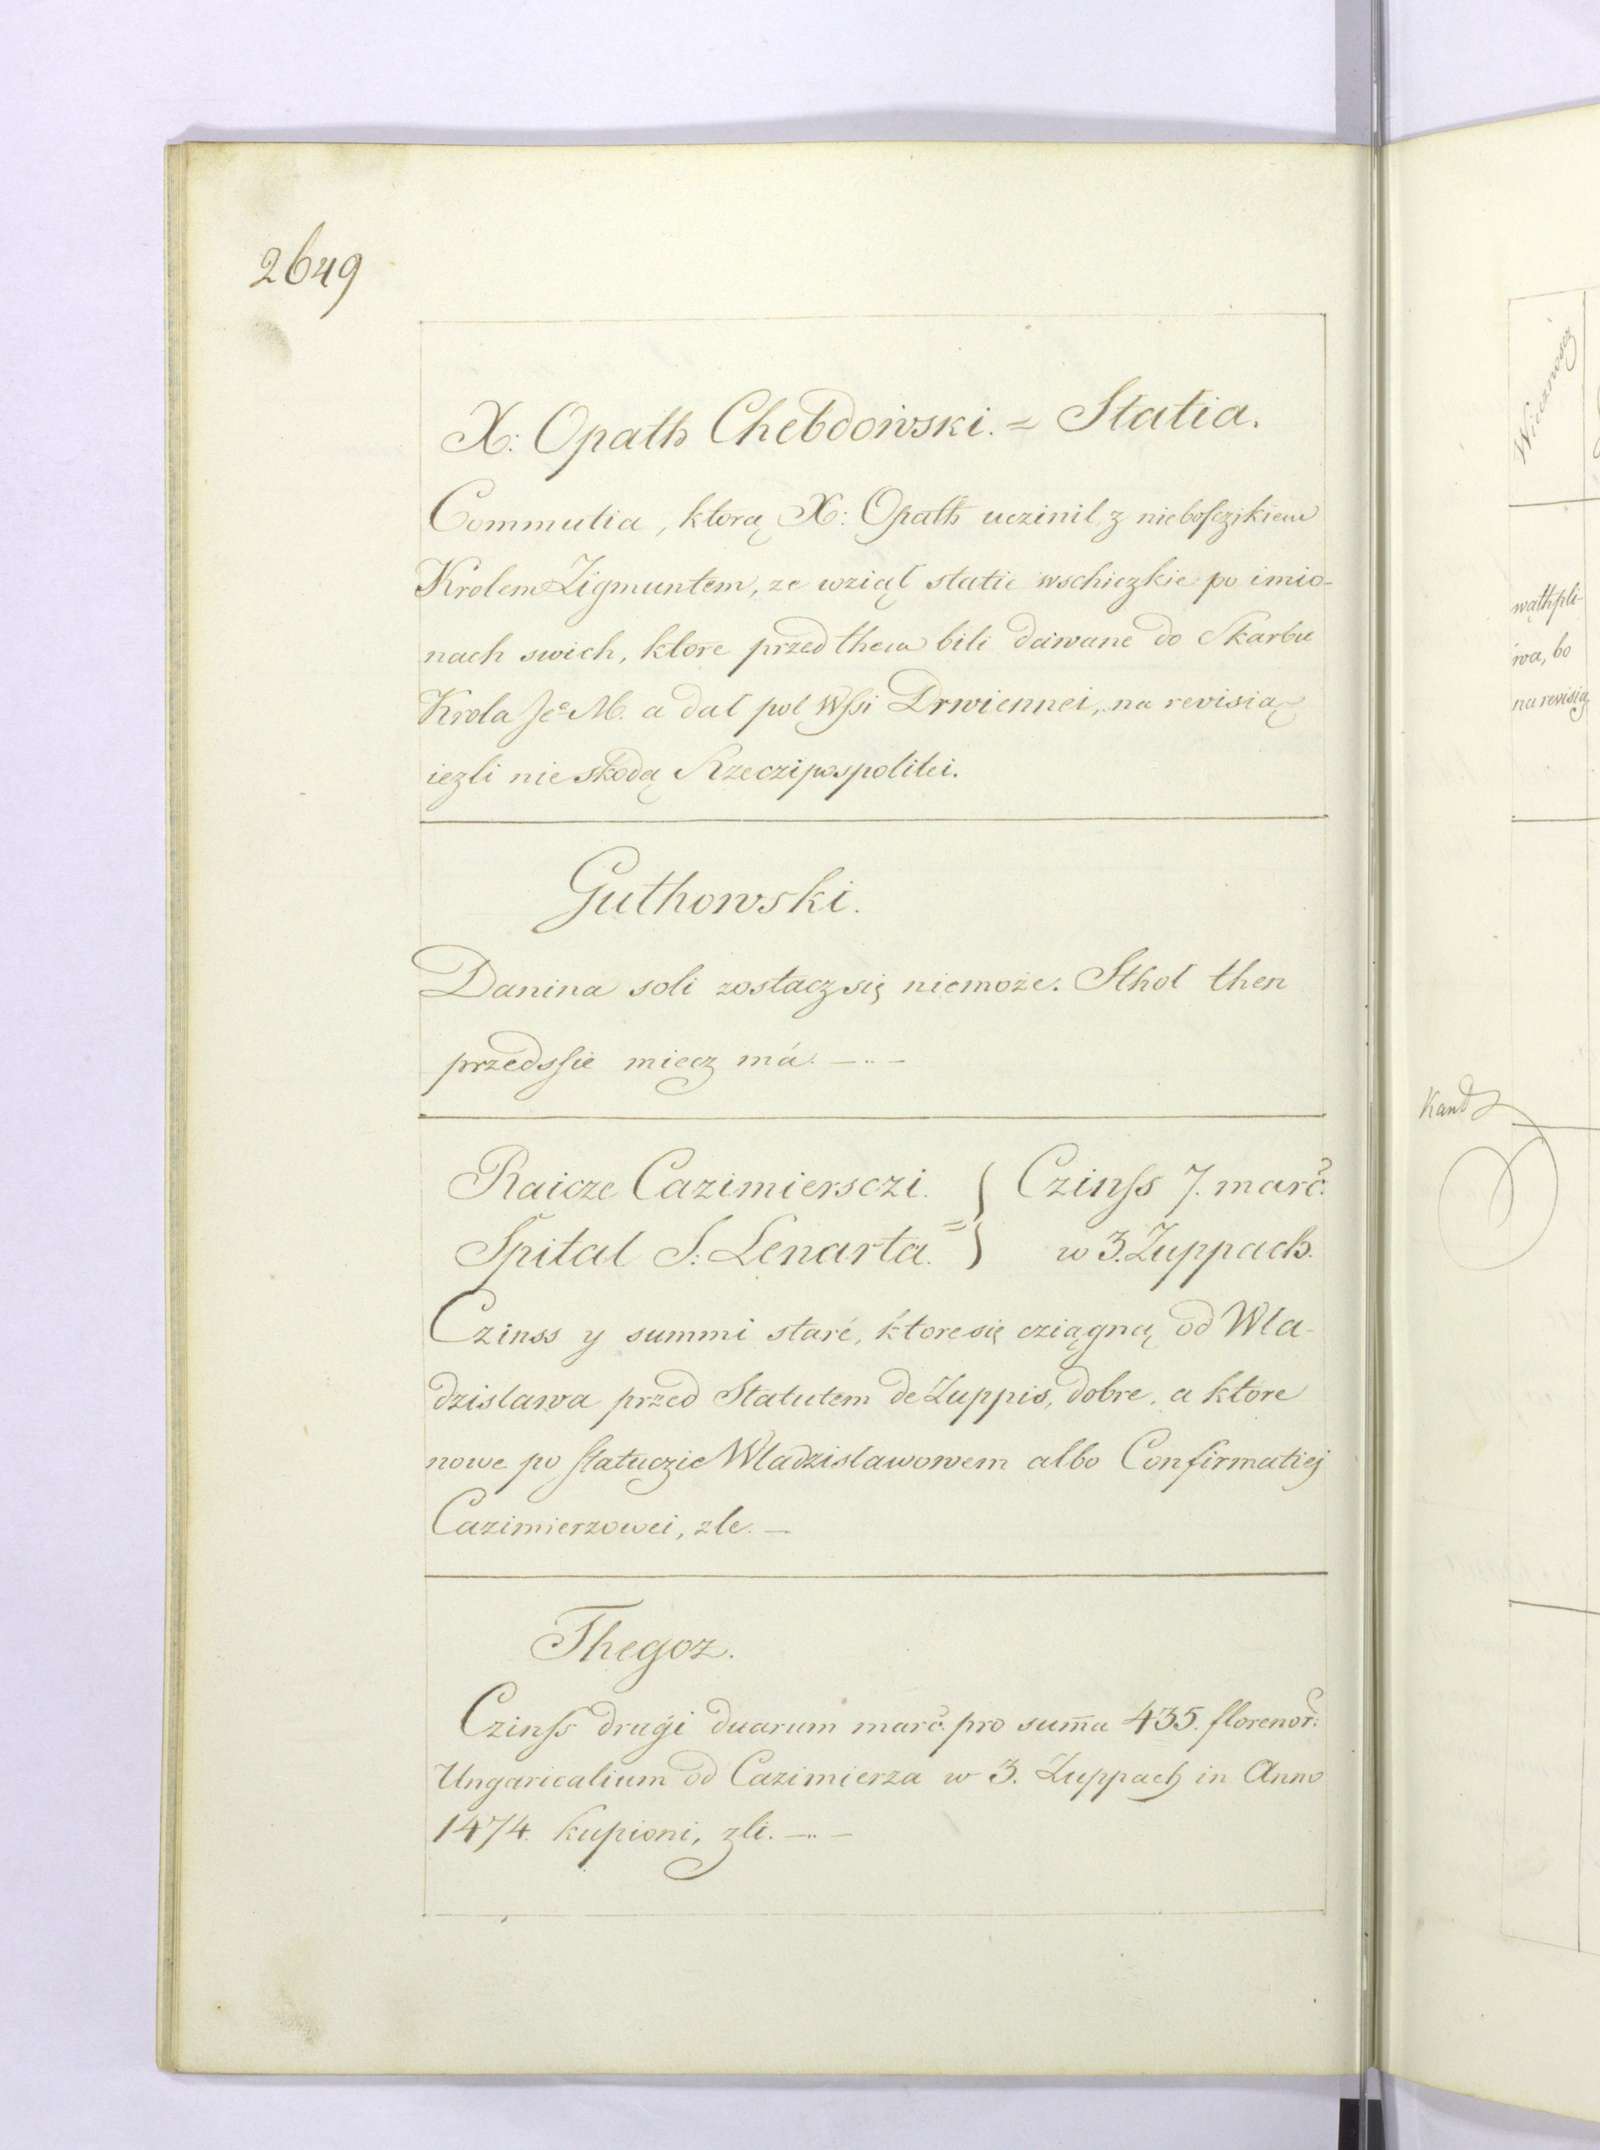 2649
X: Opath Chebdowski. = Statia.
Commutia, ktorą X: Opath uczinil z niebosczikiem
Krolem Zigmuntem, ze wziął statie wschiczkie po imio-
nach swich, ktore przed them bili dawane do Skarbu
Krola Jᵉ M. a dał poł Wsi Drwiennei, na revisią
iezli nie skodą Rzeczipospolitei.
Guthowski.
Danina soli zostacz się niemoże. Sthoł then
przedssie miecz má. — .. —
Raicze Cazimiersczi. } Czinss 7. marc.
Spital S: Lenarta. = } w 3. Zuppach.
Czinss y summi staré, ktore się cziągną od Wła-
dzisława przed Statutem de Zuppis, dobre, a ktore
nowe po statuczie Władzisławowem albo Confirmatiej
Cazimierzowei, złe. —
Thegoz.
Czinss drugi duarum marc. pro suma 435. florenor:
Ungaricalium od Cazimierza w 3. Zuppach in Anno
1474. kupioni, zli. — .. —
wąthpli-
wa, bo
na revisią
Kand